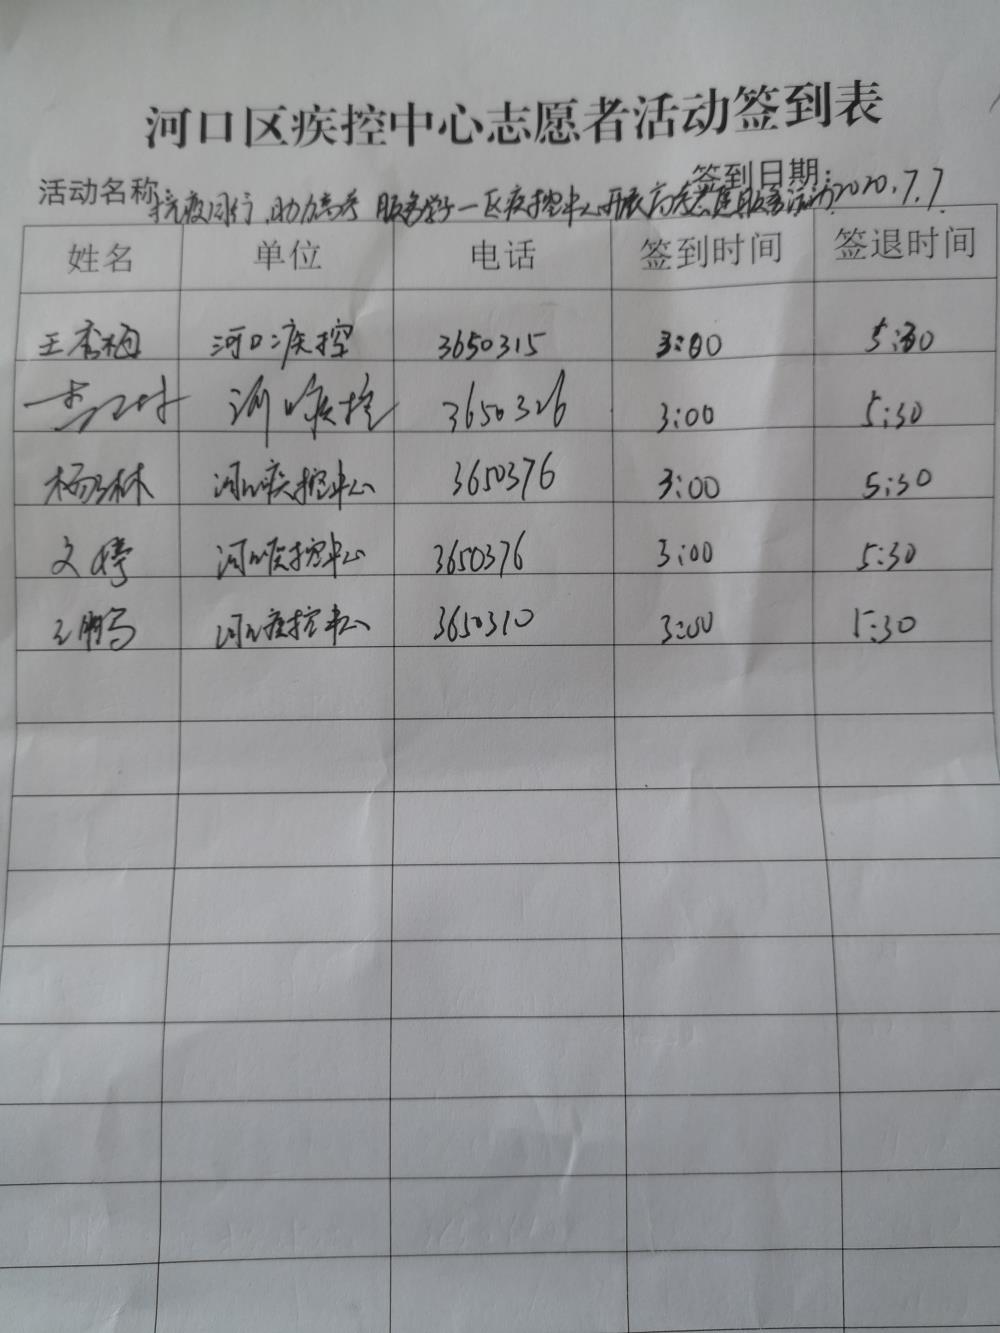 河口区疾控中心志愿者活动签到表
活动名称 抗疫同行、助力高考 服务学子—区疾控中心开展高考志愿服务活动 签到日期: 2020.7.7.
姓名 单位 电话 签到时间 签退时间
王秀梅 河口疾控 3650315 3:00 5:30
河口疾控 3650326 3:00 5:30
杨林 河口疾控中心 3650376 3:00 5:30
文婷 河口疾控中心 3650376 3:00 5:30
王鹏 河口疾控中心 3650310 3:00 5:30